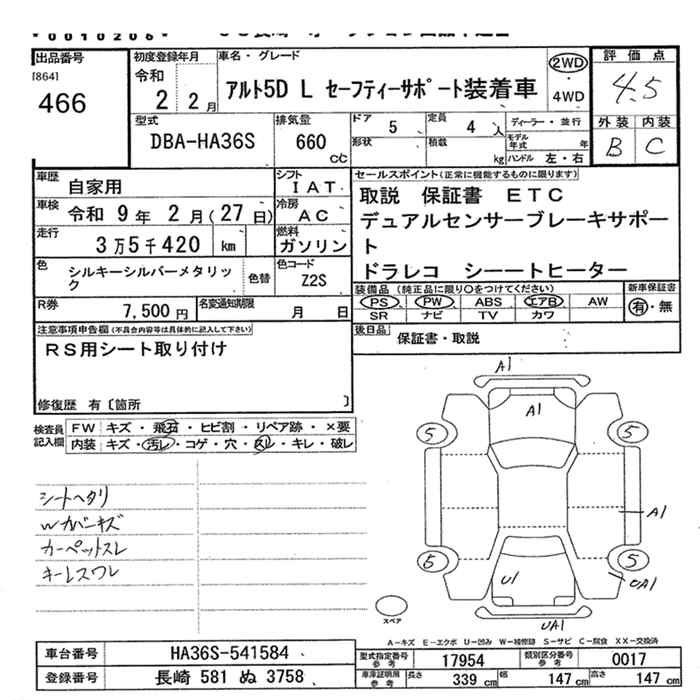 0010206
出品番号
[864]
466
初度登録年月
令和
2 2月
車名・グレード
アルト5D L セーフティーサポート装着車
2WD
・
4WD
評価点
4.5
外装 内装
B C
型式
DBA-HA36S
排気量
660
cc
ドア 5
形状
定員 4 人
積載 kg
ディーラー・並行
モデル年式 年
ハンドル 左・右
車歴 自家用
シフト IAT
車検 令和 9年 2月(27日)
冷房 AC
走行 3万5千420 km
燃料 ガソリン
色 シルキーシルバーメタリッ
ク
色替
色コード
Z2S
R券 7,500円
名変通知期限 月 日
セールスポイント(正常に機能するものに限ります)
取説 保証書 ETC
デュアルセンサーブレーキサポー
ト
ドラレコ シートヒーター
装備品(純正品に限り○をつけてください)
PS PW ABS エアB AW
SR ナビ TV カワ
新車保証書
有・無
後日品 保証書・取説
注意事項申告欄(不具合内容等は具体的に記入して下さい)
RS用シート取り付け
修復歴 有〔箇所 〕
検査員
記入欄
FW キズ・飛石・ヒビ割・リペア跡・×要
内装 キズ・汚レ・コゲ・穴・スレ・キレ・破レ
シートヘタリ
Wカバーキズ
カーペットスレ
キーレスワレ
A1
A1
5 5
A1
5 5
U1
UA1
UA1
スペア
A-キズ E-エクボ U-凹み W-補修跡 S-サビ C-腐食 XX-交換済
車台番号 HA36S-541584
登録番号 長崎 581 ぬ 3758
型式指定番号
参考
17954
類別区分番号
参考
0017
車庫証明用
参考
長さ 339 cm 幅 147 cm 高さ 147 cm